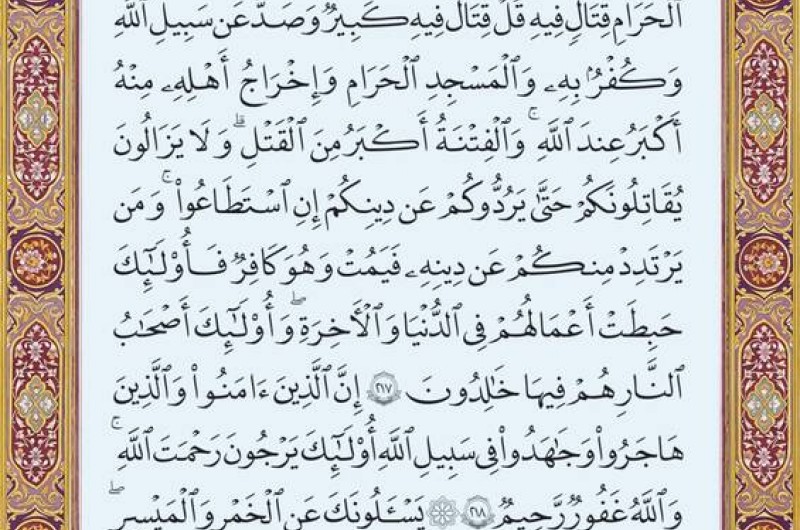 ٱلْحَرَامِ قِتَالٍ فِيهِ قُلْ قِتَالٌ فِيهِ كَبِيرٌ وَصَدٌّ عَن سَبِيلِ ٱللَّهِ
وَكُفْرٌۢ بِهِۦ وَٱلْمَسْجِدِ ٱلْحَرَامِ وَإِخْرَاجُ أَهْلِهِۦ مِنْهُ
أَكْبَرُ عِندَ ٱللَّهِ ۚ وَٱلْفِتْنَةُ أَكْبَرُ مِنَ ٱلْقَتْلِ ۗ وَلَا يَزَالُونَ
يُقَاتِلُونَكُمْ حَتَّىٰ يَرُدُّوكُمْ عَن دِينِكُمْ إِنِ ٱسْتَطَاعُوا۟ ۚ وَمَن
يَرْتَدِدْ مِنكُمْ عَن دِينِهِۦ فَيَمُتْ وَهُوَ كَافِرٌ فَأُو۟لَٰٓئِكَ
حَبِطَتْ أَعْمَالُهُمْ فِى ٱلدُّنْيَا وَٱلْأَخِرَةِ ۖ وَأُو۟لَٰٓئِكَ أَصْحَابُ
ٱلنَّارِ هُمْ فِيهَا خَالِدُونَ ٢١٧ إِنَّ ٱلَّذِينَ ءَامَنُوا۟ وَٱلَّذِينَ
هَاجَرُوا۟ وَجَاهَدُوا۟ فِى سَبِيلِ ٱللَّهِ أُو۟لَٰٓئِكَ يَرْجُونَ رَحْمَتَ ٱللَّهِ ۚ
وَٱللَّهُ غَفُورٌ رَّحِيمٌ ٢١٨ ۞ يَسْـَٔلُونَكَ عَنِ ٱلْخَمْرِ وَٱلْمَيْسِرِ ۖ